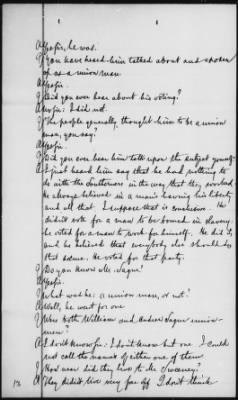 A Yes sir, he was.
Q You have heard him talked about and spoken
of as a union man
A Yes sir.
Q Did you ever hear about his voting?
A No sir: I did not.
Q The people generally, thought him to be a union
man, you say?
A Yes sir.
Q Did you ever hear him talk upon the subject yourself
A I just heard him say that he had nothing to
do with the Southerners in the way that they worked
he always believed in a man having his liberty
and all that. I suppose that is business. He
didn't vote for a man to be bound in slavery.
he voted for a man to work for himself. He did it,
and he believed that everybody else should do
the same. He voted for that party.
Q Do you know Mr.
A Yes sir.
Q What was he: a union man, or not?
A Well, he went for one
Q Were both William and Andrew union
men?
A I don't know sir: I don't know but one I could
not call the name of either one of them
Q How near did they live to Mr Sweeney?
A They didn't live very far off I don't think